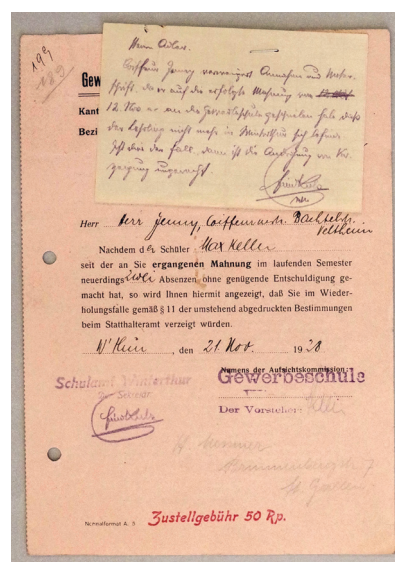 199
183
Gew
Kant
Bezi
Herrn Adler.
Coiffeur Jenny verweigert Annahme und Unter-
schrift, da er auf die erfolgte Mahnung vom
12. Nov er an die Gewerbeschule geschrieben habe dass
der Lehrling nicht mehr in Winterthur sich befinde.
Ist dies der Fall, dann ist die
ungerecht.
Herr Herr Jenny, Coiffeurmstr. Bachtelstr.
Veltheim
Nachdem der Schüler: Max Keller
seit der an Sie ergangenen Mahnung im laufenden Semester
neuerdings zwei Absenzen ohne genügende Entschuldigung ge-
macht hat, so wird Ihnen hiermit angezeigt, daß Sie im Wieder-
holungsfalle gemäß § 11 der umstehend abgedruckten Bestimmungen
beim Statthalteramt verzeigt würden.
W'thur, den 21. Nov. 1928
Namens der Aufsichtskommission:
Schulamt Winterthur
Der Sekretär:
Gewerbeschule
Der Vorsteher:
St. Gallen
Normalformat A. 5
Zustellgebühr 50 Rp.